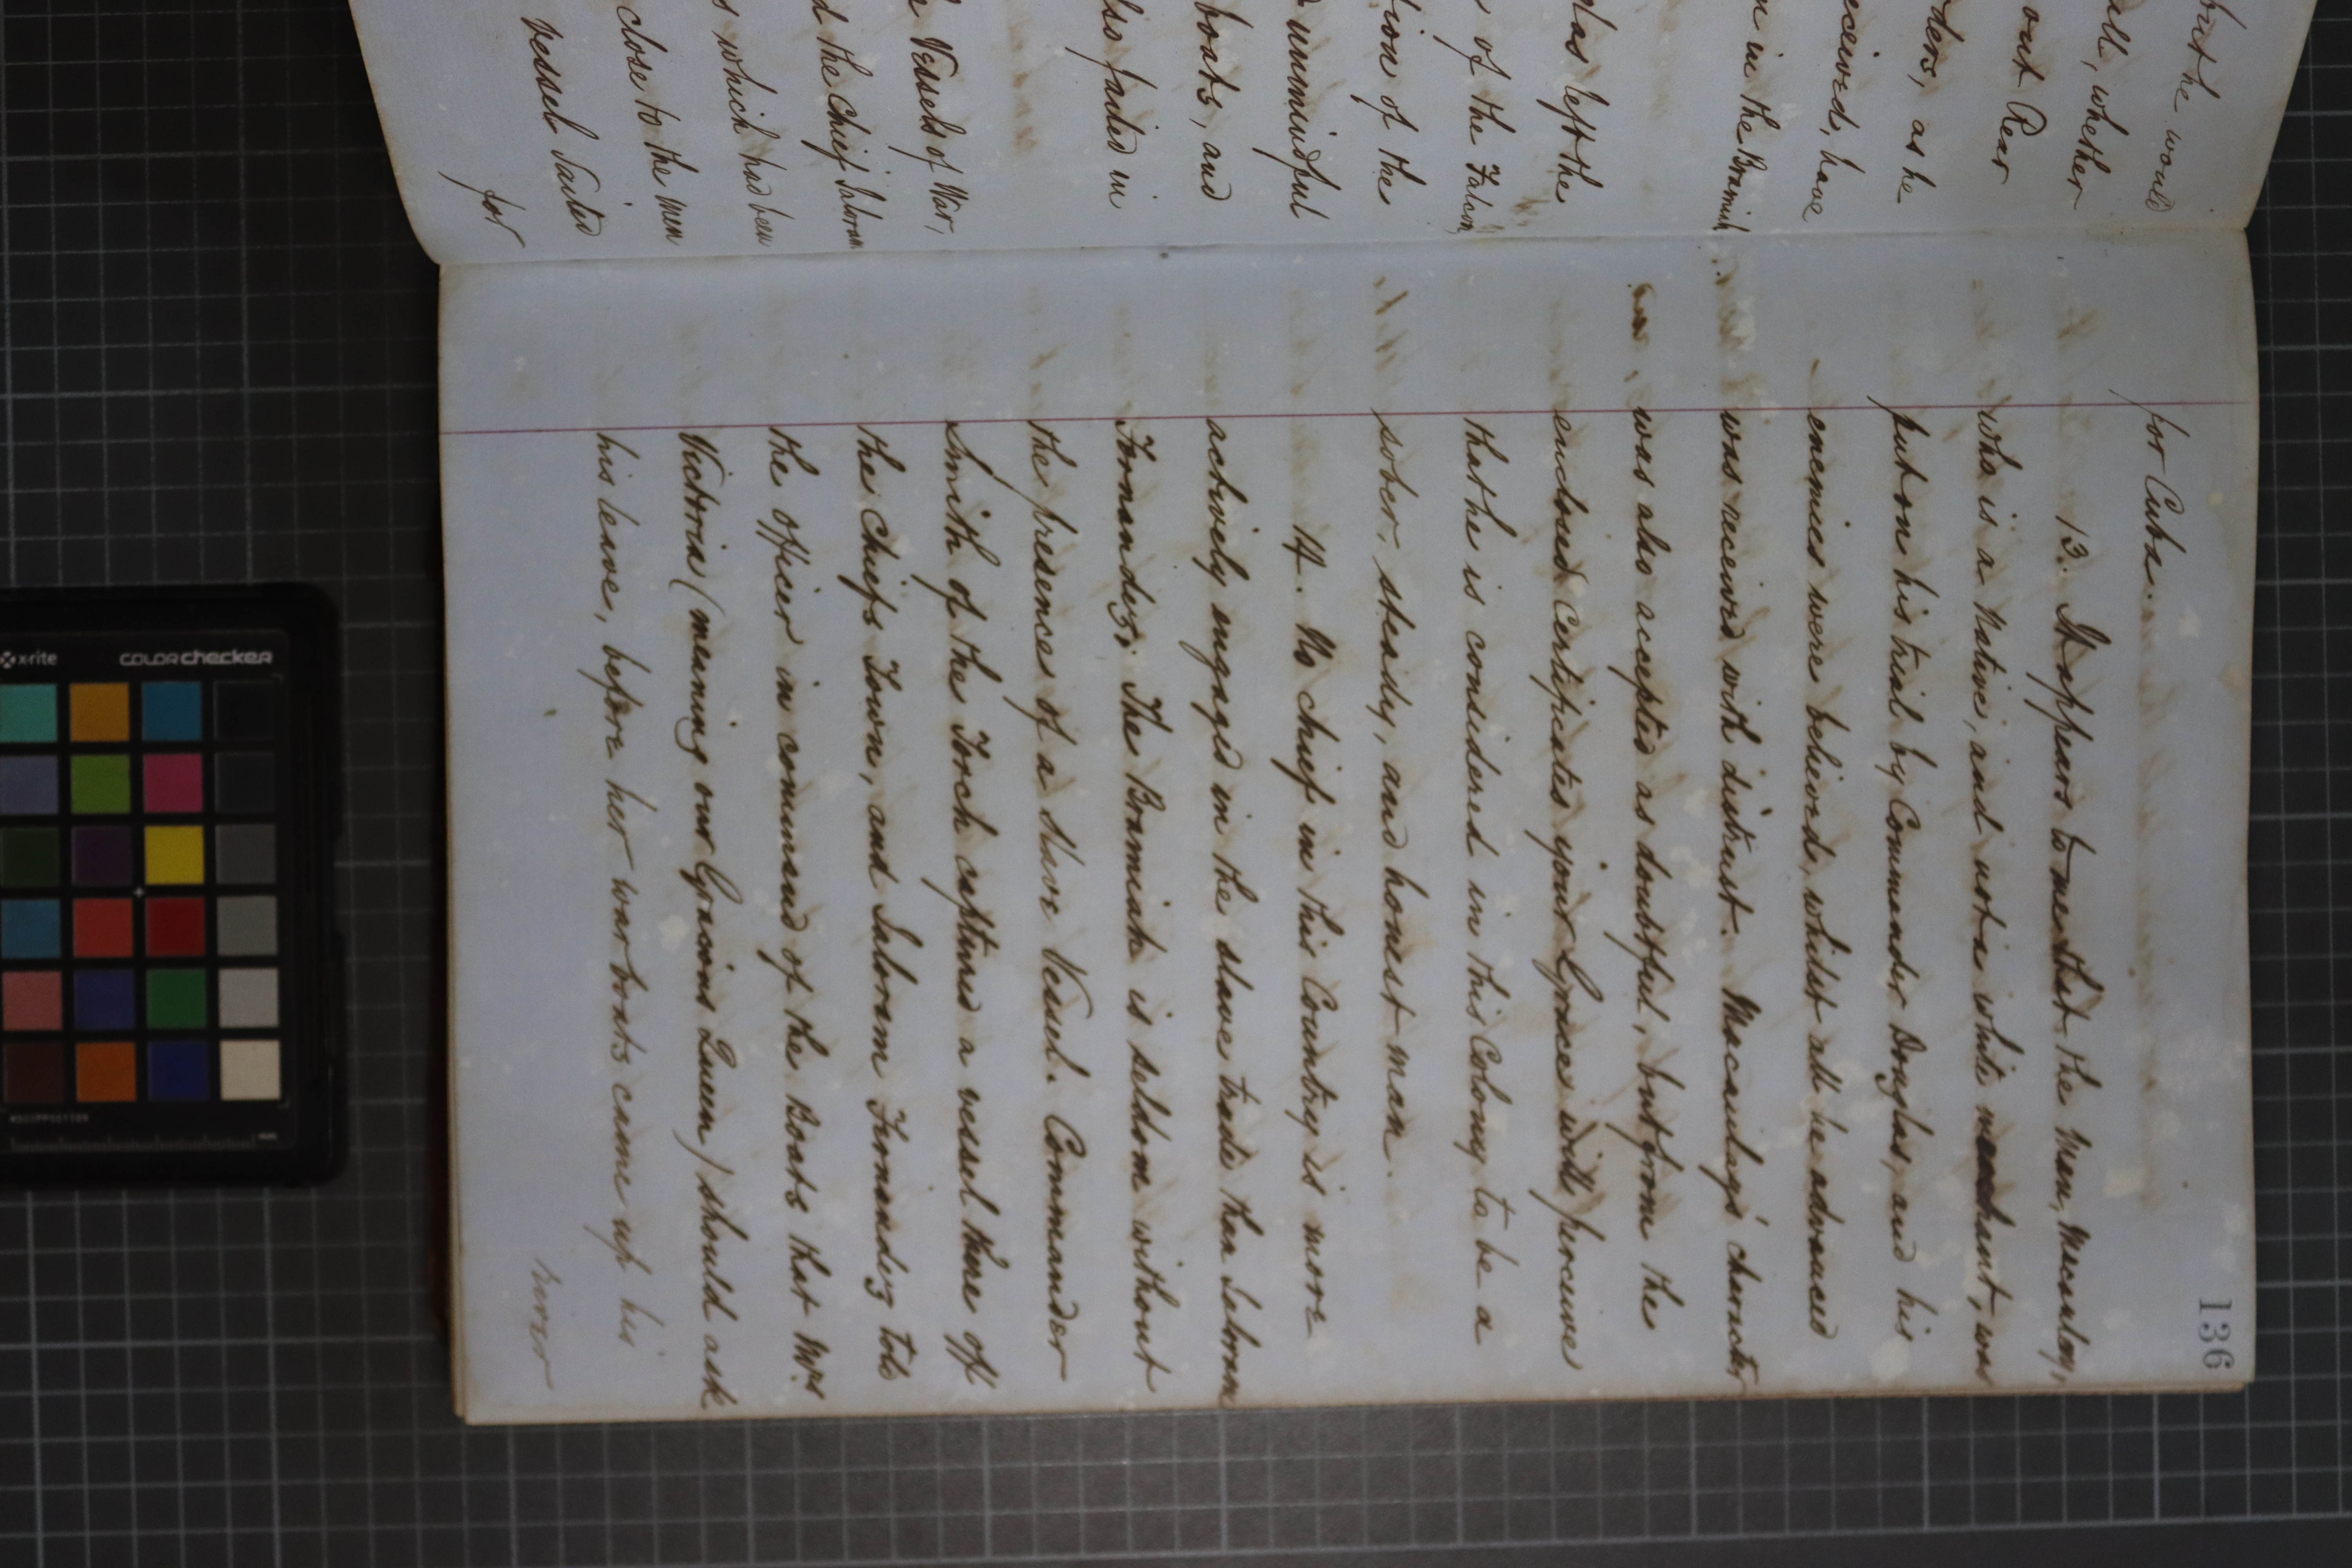 but he would
all, whether
out Rear
ders, as he
eceived, have
n in the Bramiah
las left the
of the Falcon,
tion of the
unmindful
boats, and
lso failed in
Vessels of War,
d the Chief Saloram
s which had been
close to the men
vessel sailed
for
136
for Cuba.
13. It appears to me that the Man, Macaulay,
who is a Native, and not a white merchant, was
put on his trial by Commander Douglas, and his
enemies were believed, whilst all he advanced
was received with distrust. Macaulay's character
was also accepted as doubtful, but from the
enclosed Certificates your Grace will perceive
that he is considered in this Colony to be a
sober, steady, and honest man.
14. No chief in this Country is more
actively engaged in the slave trade than Saloram
Fornandiz; The Bramiah is seldom without
the presence of a slave Vessel. Commander
Smith of the Torch captured a vessel there off
the Chiefs Town, and Saloram Fornandiz told
the officer in command of the Boats that Mrs
Victoria (meaning our Gracious Queen) should ask
his leave, before her war boats came up his
river